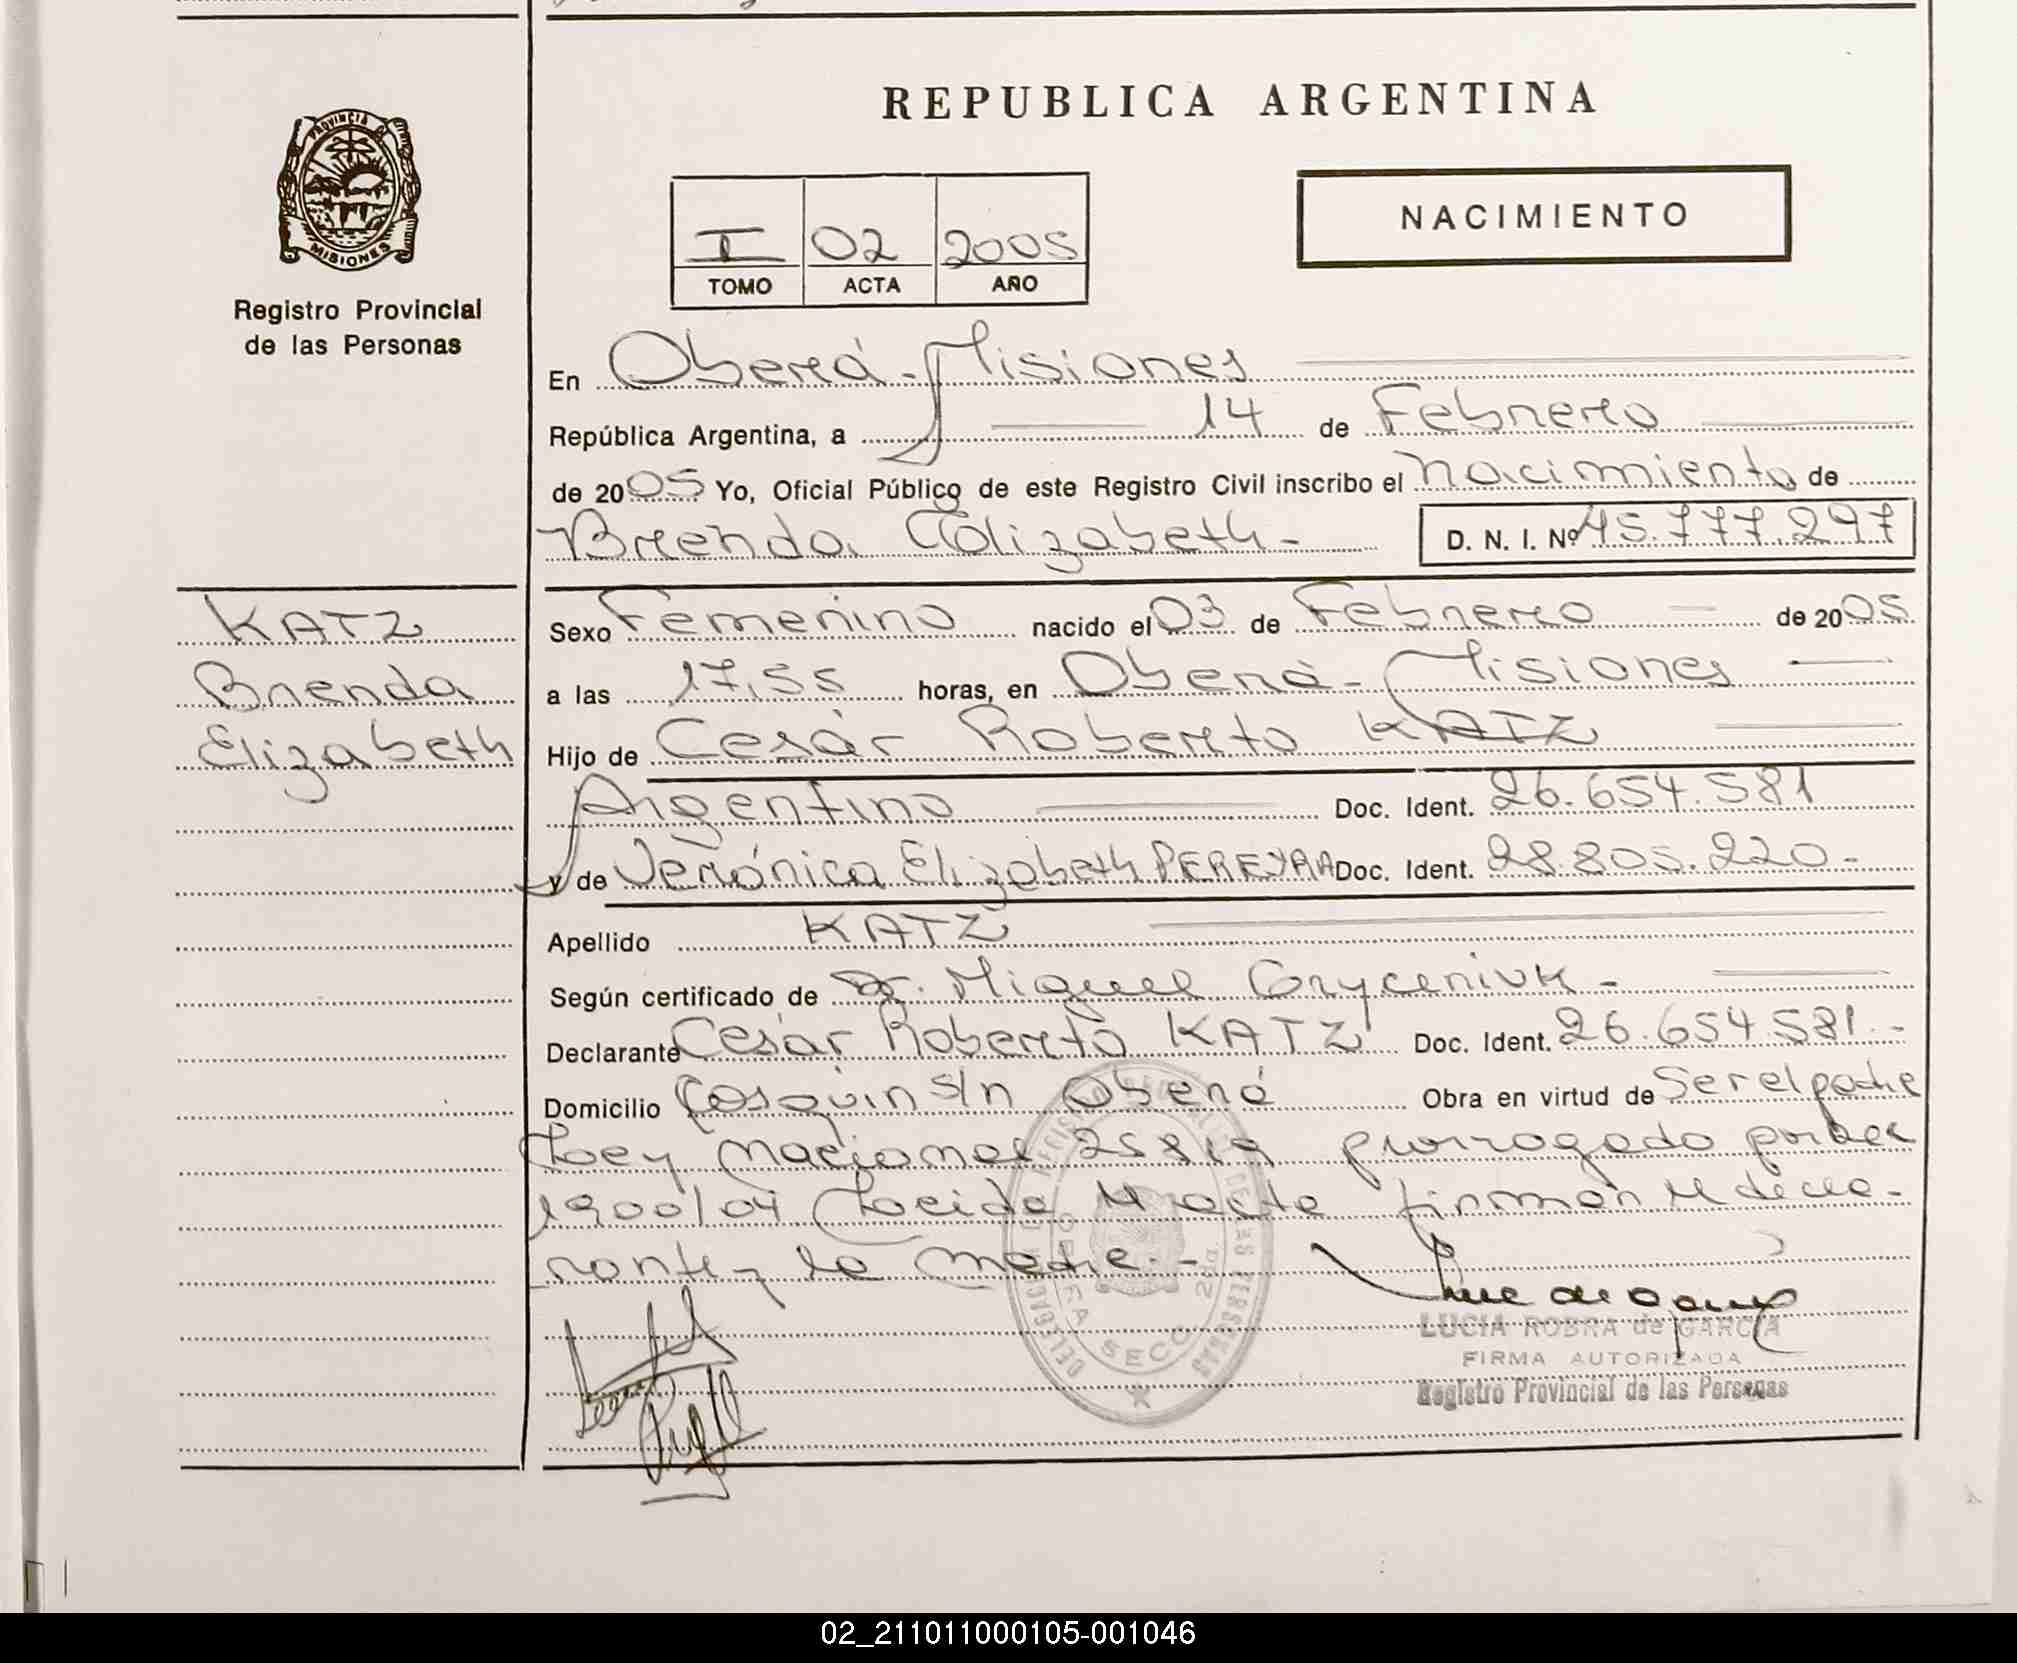 REPUBLICA ARGENTINA
PROVINCIA DE
MISIONES
Registro Provincial
de las Personas
I 02 2005
TOMO ACTA AÑO
NACIMIENTO
En Oberá - Misiones
República Argentina, a 14 de Febrero
de 2005 Yo, Oficial Público de este Registro Civil inscribo el nacimiento de
Brenda Elizabeth - D. N. I. Nº 45.777.297
KATZ
Brenda
Elizabeth
Sexo Femenino nacido el 03 de Febrero de 2005
a las 17,55 horas, en Oberá - Misiones
Hijo de Cesár Roberto KATZ
Argentino Doc. Ident. 26.654.581
y de Verónica Elizabeth PEREYRA Doc. Ident. 28.805.220-
Apellido KATZ
Según certificado de Dr. Miguel Gryceniuk -
Declarante Cesár Roberto KATZ Doc. Ident. 26.654.581.-
Domicilio Cosquin S/n Oberá Obra en virtud de Ser el padre
Ley Nacional 25819 prorrogado por Dec
1900/04 Leida el acta firman el decla-
rante y la madre.-
LUCIA ROBRA de GARCIA
FIRMA AUTORIZADA
Registro Provincial de las Personas
SECC. 2da.
02_211011000105-001046